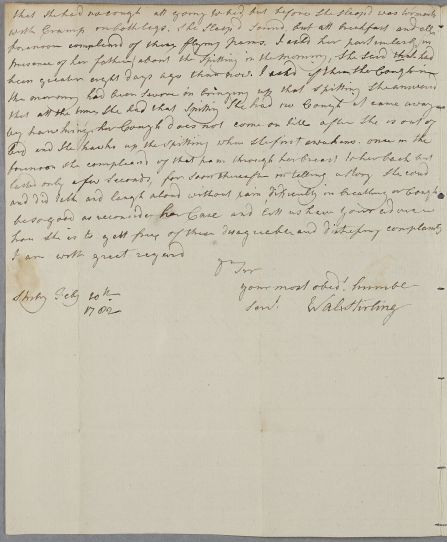 that She had no cough at going to bed but before She Sleep'd was torment
with Cramp on both legs. She Sleep'd Sound but at breakfast and all
forenoon complained of these flying pains. I asked her particularly in
presence of her father about the Spitting in the morning, She Said it had
been greater eight days ago than now. I asked if then the Cough in
the morning had been Severe in bringing up that Spitting She answered
that all the time She had that Spitting She had no Cough it came away
by hawking, her Cough does not come on till after She is out of
bed and She hawks up the Spitting when She first awakens. once in the
forenoon She complained of that pain through her breast to her back but
lasted only a few Seconds, for Soon thereafter in telling a Story She could
and did talk and laugh aloud without pain difficulty in breathing or Cough
be so good as reconsider her Case and let us have your advice
how She is to gett free of these disagreeable and distressing complaints
I am with great regard
Dr Sir
your most obed.t humble
Ser.t Wal: Stirling
Feby 20th
1782